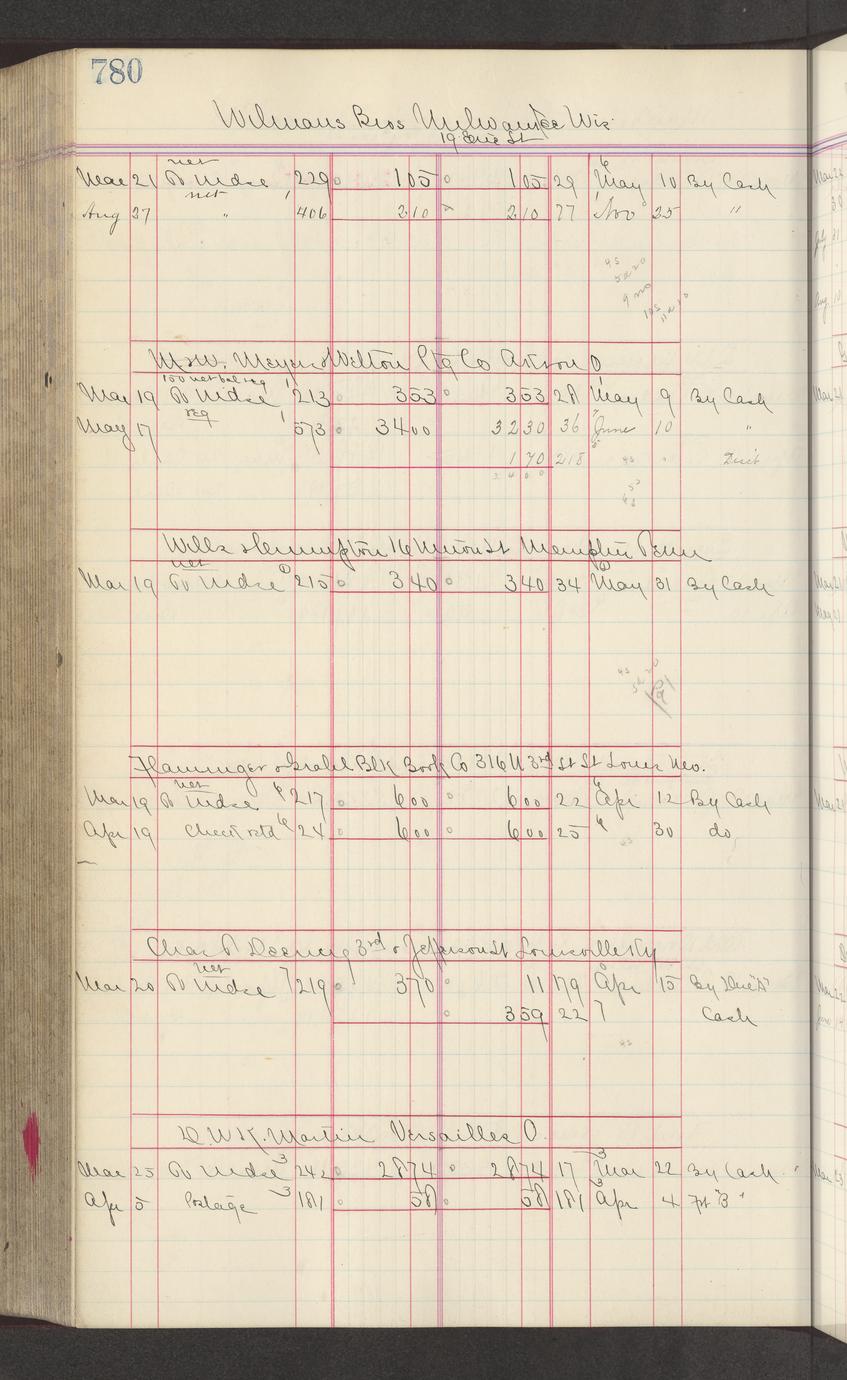 780
Wilmans Bros Milwaukee Wis
19 Erie St
net
Mar 21 To Mdse 229 105 105 29 May 10 By Cash
net
Aug 27 " 406 210 210 77 Nov 25 "
M & W. Meyers Welton Ptg Co Akron O
150 net bal reg
Mar 19 To Mdse 213 353 353 28 May 9 By Cash
reg
May 17 573 3400 3230 36 June 10 "
170 218 " Disct
3400
Wills & Crumpton 16 Union St Memphis Tenn
net
Mar 19 To Mdse 215 340 340 34 May 31 By Cash
Blk Book Co 316 N 3rd St St Louis Mo.
net
Mar 19 To Mdse 217 600 600 22 Apr 12 By Cash
Apr 19 Check retd 24 600 600 25 30 do
Chas T Deering 3rd & Jefferson St Louisville Ky
net
Mar 20 To Mdse 7 219 370 11 179 Apr 15 By Disc't
359 22 7 Cash
D. W. K. Martin Versailles O.
Mar 25 To Mdse 3 242 2874 2874 17 3 Mar 22 By Cash
Apr 5 Postage 3 181 58 58 181 3 Apr 4 "